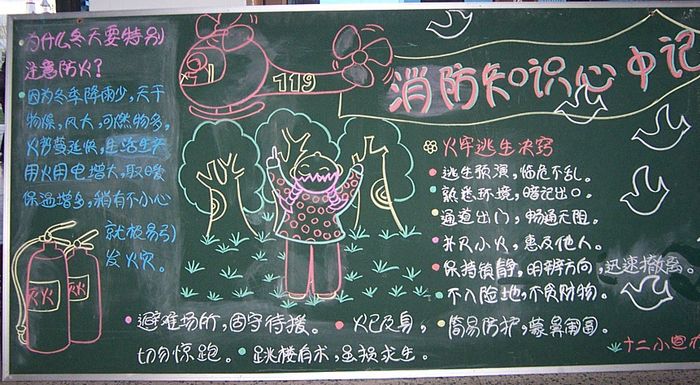 为什么冬天要特别
注意防火?
因为冬季降雨少,天干
物燥,风大,可燃物多,
火势蔓延快,生活生产
用火用电增大,取暖
保温增多,稍有不小心
就极易引
发火灾。
119
消防知识心中记
灭火
灭火
火牢逃生决窍
逃生预演,临危不乱。
熟悉环境,暗记出口。
通道出门,畅通无阻。
扑灭小火,惠及他人。
保持镇静,明辨方向,迅速撤离。
不入险地,不贪财物。
避难场所,固守待援。
火已及身,
简易防护,蒙鼻匍匐。
切勿惊跑。
跳楼有术,虽损求生。
十二小宣